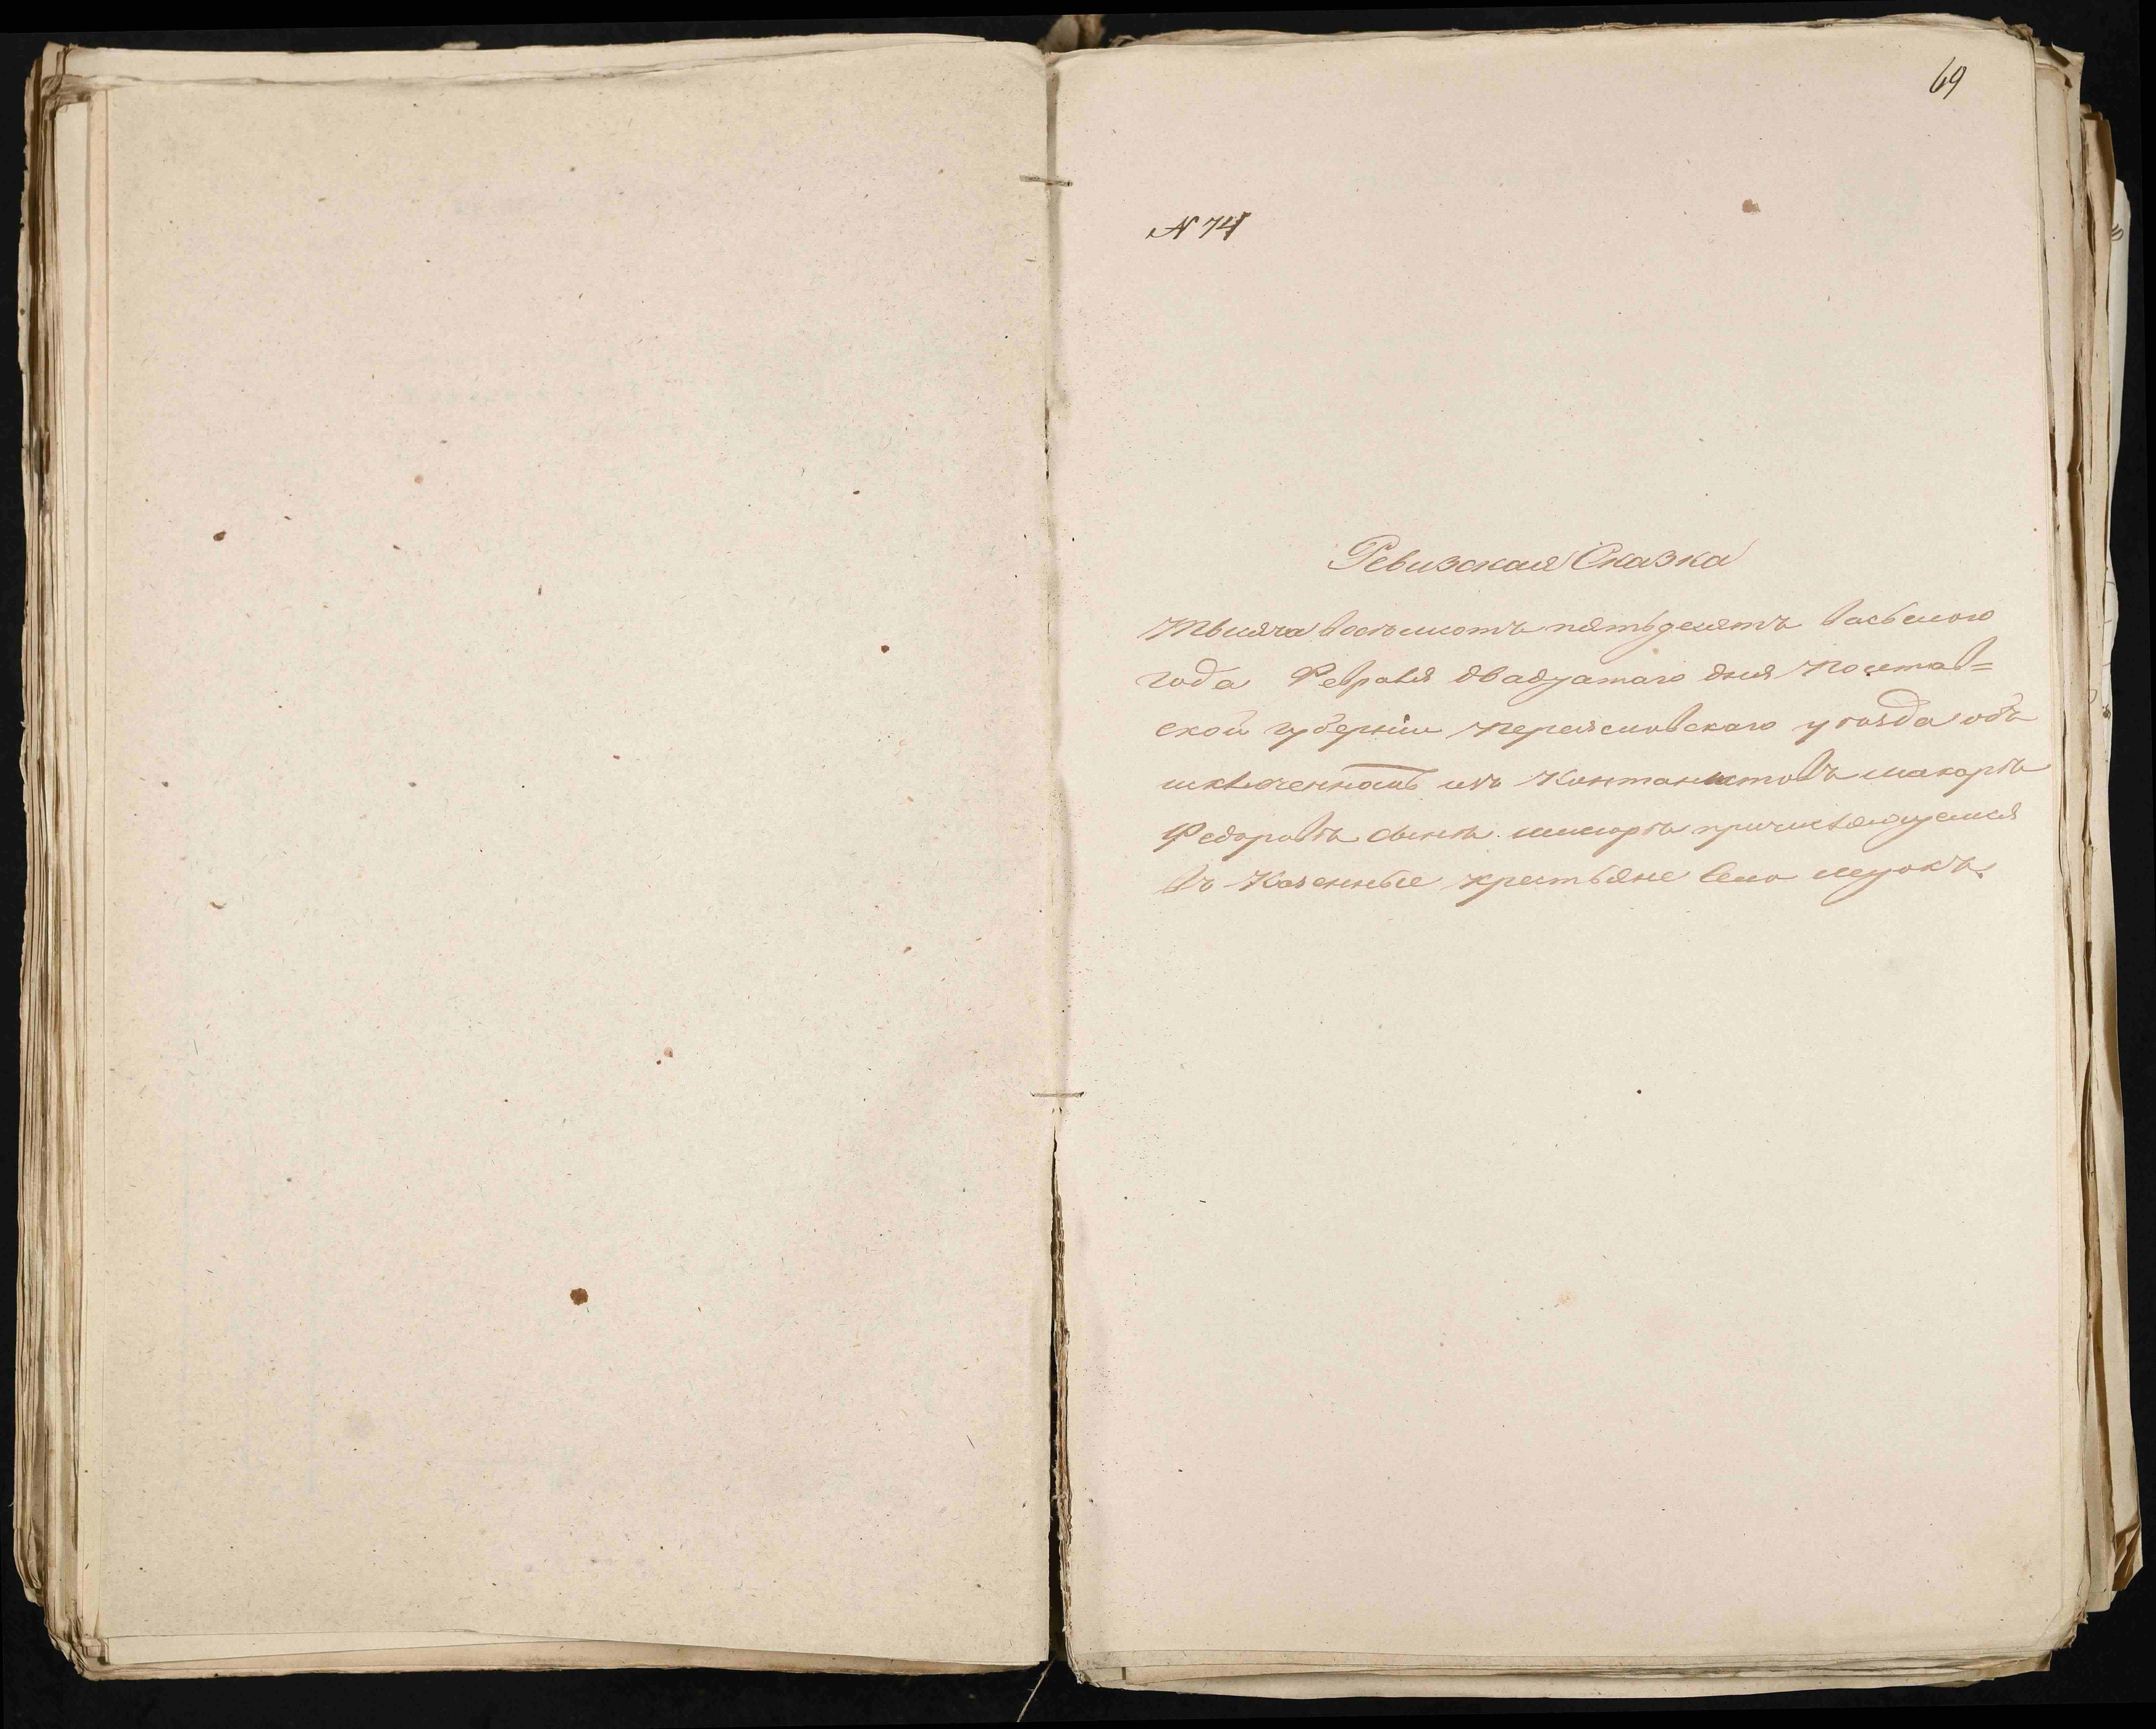 69
№ 74
Ревизская Сказка
Тысяча восемсотъ пятьдесятъ васьмого
года Февраля двадцатаго дня Полтав=
ской губерніи Переясловскаго уезда объ
изъ Кантонистовъ макаръ
Федоровъ сынъ причисляющемся
въ Казенные крестьяне